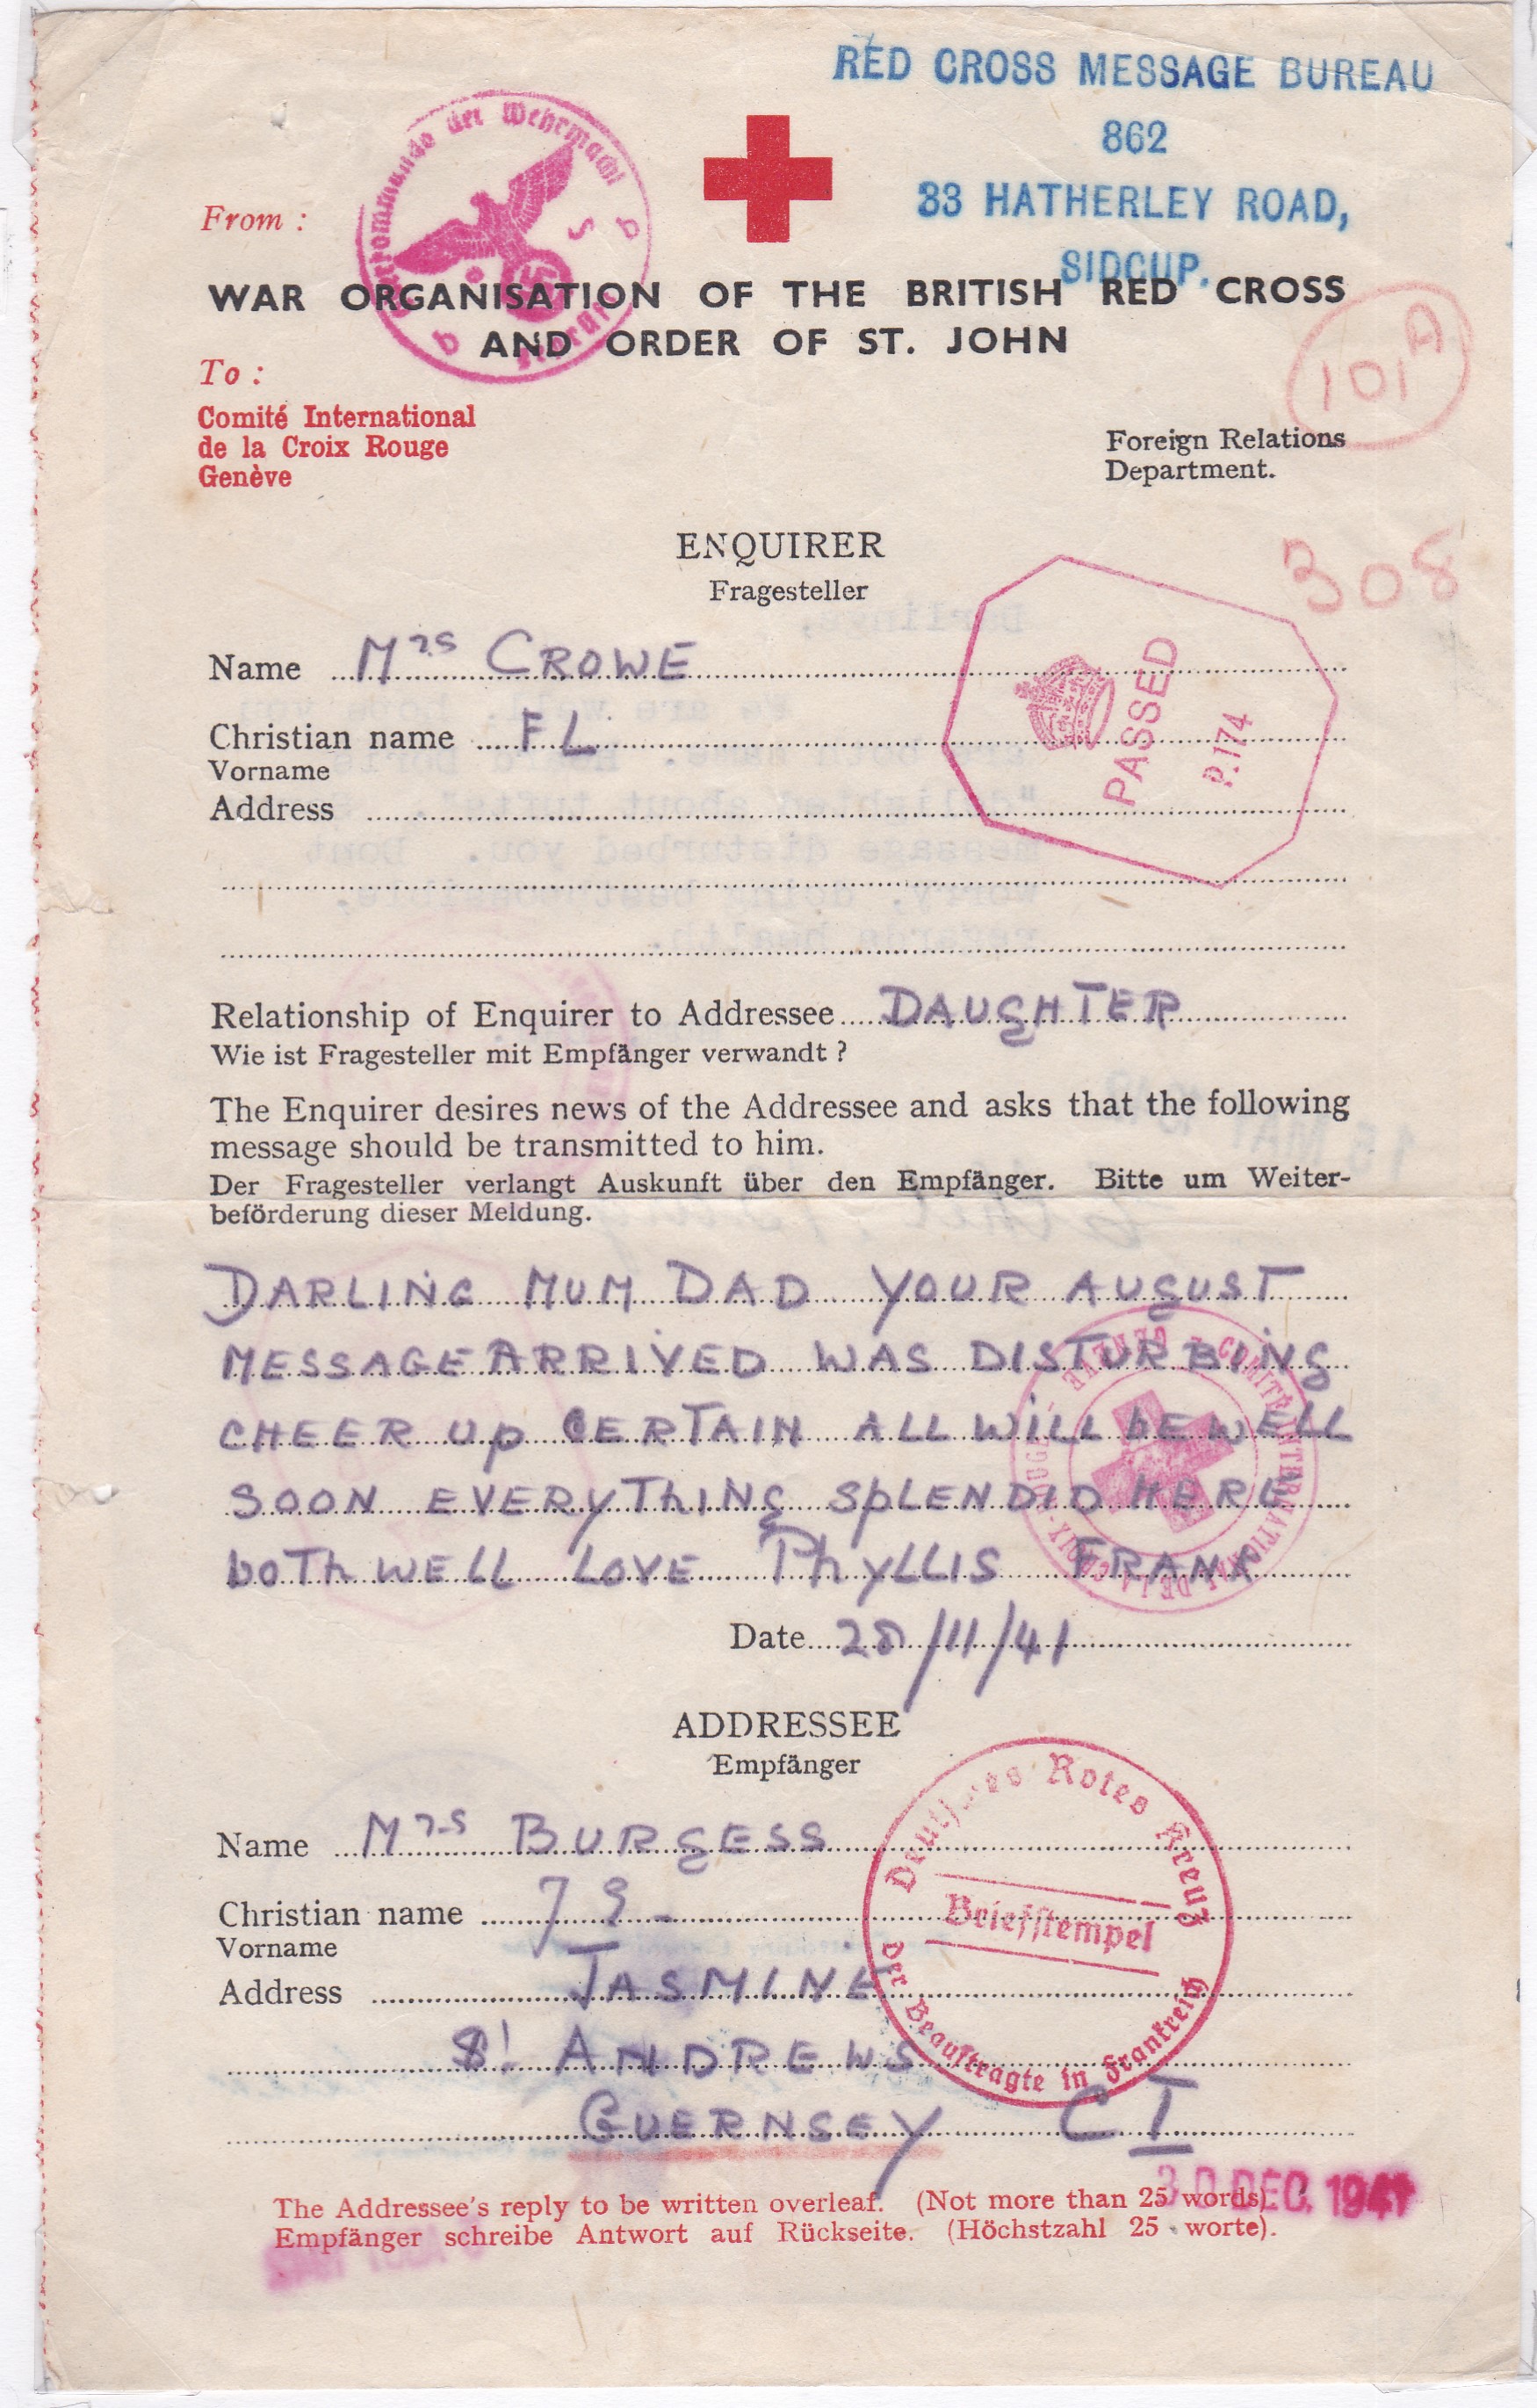 RED CROSS MESSAGE BUREAU
862
33 HATHERLEY ROAD,
SIDCUP.
der Wehrmacht
b
b
From :
WAR ORGANISATION OF THE BRITISH RED CROSS
AND ORDER OF ST. JOHN
To :
Comité International
de la Croix Rouge
Genève
101 A
Foreign Relations
Department.
308
ENQUIRER
Fragesteller
PASSED
P.174
Name Mrs CROWE
Christian name F L
Vorname
Address
Relationship of Enquirer to Addressee DAUGHTER
Wie ist Fragesteller mit Empfänger verwandt ?
The Enquirer desires news of the Addressee and asks that the following
message should be transmitted to him.
Der Fragesteller verlangt Auskunft über den Empfänger. Bitte um Weiter-
beförderung dieser Meldung.
DARLING MUM DAD YOUR AUGUST
MESSAGE ARRIVED WAS DISTURBING
CHEER UP CERTAIN ALL WILL bE WELL
SOON EVERYThING SPLENDID HERE
boTh WELL LOVE PhYLLIS FRANK
COMITÉ INTERNATIONAL DE LA CROIX-ROUGE - GENÈVE
Date 28/11/41
ADDRESSEE
Empfänger
Name Mrs BURGESS
Christian name
Vorname
Address JASMINE
St ANDREWS
GUERNSEY C I
Deutsches Rotes Kreuz
Briefstempel
Der Beauftragte in Frankreich
30 DEC. 1941
The Addressee's reply to be written overleaf. (Not more than 25 words).
Empfänger schreibe Antwort auf Rückseite. (Höchstzahl 25 worte).